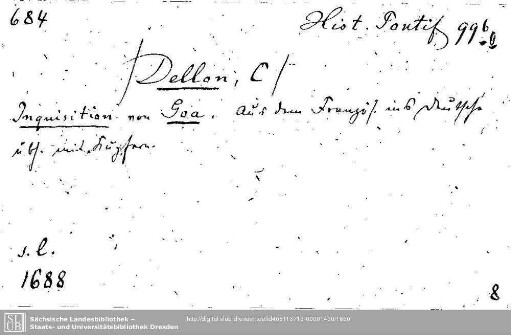 684 Hist. Pontif 99b
/Dellon, C/
Inquisition von Goa. Aus dem Französ. ins Deutsche
üb. mit Kupfern.
s. l.
1688
8
Sächsische Landesbibliothek –
Staats- und Universitätsbibliothek Dresden